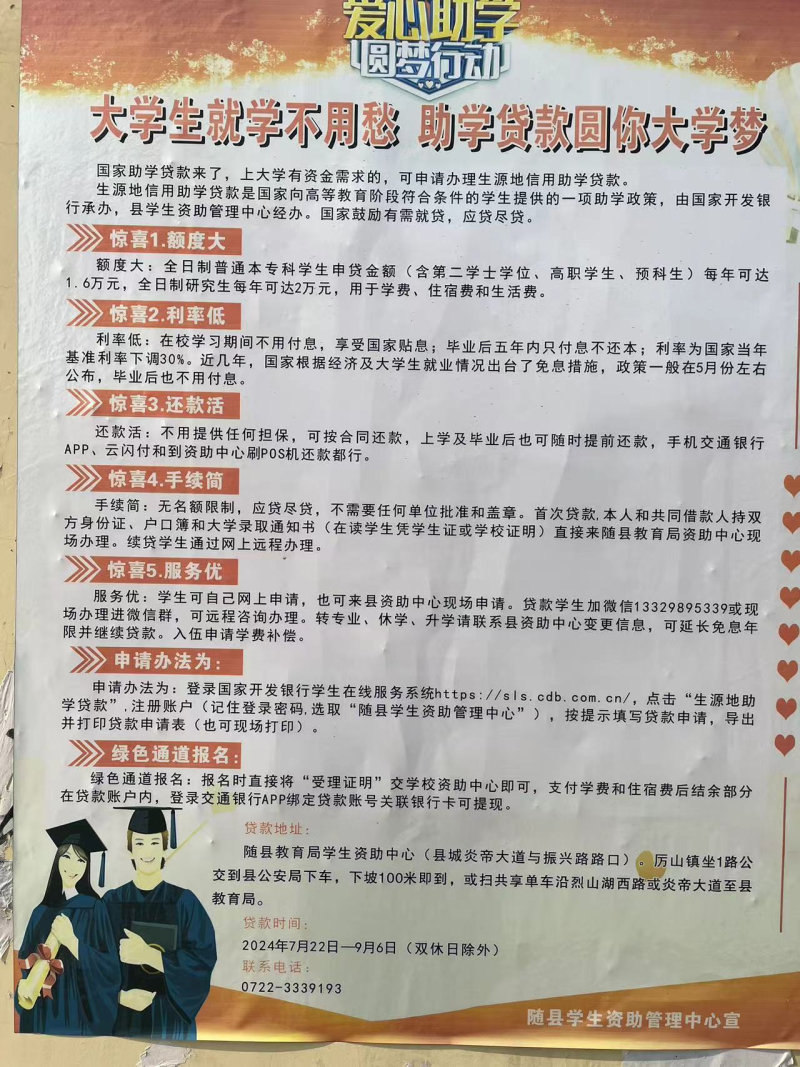 爱心助学
圆梦行动
大学生就学不用愁 助学贷款圆你大学梦
国家助学贷款来了，上大学有资金需求的，可申请办理生源地信用助学贷款。
生源地信用助学贷款是国家向高等教育阶段符合条件的学生提供的一项助学政策，由国家开发银
行承办，县学生资助管理中心经办。国家鼓励有需就贷，应贷尽贷。
惊喜1.额度大
额度大：全日制普通本专科学生申贷金额（含第二学士学位、高职学生、预科生）每年可达
1.6万元，全日制研究生每年可达2万元，用于学费、住宿费和生活费。
惊喜2.利率低
利率低：在校学习期间不用付息，享受国家贴息；毕业后五年内只付息不还本；利率为国家当年
基准利率下调30%。近几年，国家根据经济及大学生就业情况出台了免息措施，政策一般在5月份左右
公布，毕业后也不用付息。
惊喜3.还款活
还款活：不用提供任何担保，可按合同还款，上学及毕业后也可随时提前还款，手机交通银行
APP、云闪付和到资助中心刷POS机还款都行。
惊喜4.手续简
手续简：无名额限制，应贷尽贷，不需要任何单位批准和盖章。首次贷款,本人和共同借款人持双
方身份证、户口簿和大学录取通知书（在读学生凭学生证或学校证明）直接来随县教育局资助中心现
场办理。续贷学生通过网上远程办理。
惊喜5.服务优
服务优：学生可自己网上申请，也可来县资助中心现场申请。贷款学生加微信13329895339或现
场办理进微信群，可远程咨询办理。转专业、休学、升学请联系县资助中心变更信息，可延长免息年
限并继续贷款。入伍申请学费补偿。
申请办法为：
申请办法为：登录国家开发银行学生在线服务系统https://sls.cdb.com.cn/，点击“生源地助
学贷款”,注册账户（记住登录密码,选取“随县学生资助管理中心”），按提示填写贷款申请，导出
并打印贷款申请表（也可现场打印）。
绿色通道报名：
绿色通道报名：报名时直接将“受理证明”交学校资助中心即可，支付学费和住宿费后结余部分
在贷款账户内，登录交通银行APP绑定贷款账号关联银行卡可提现。
贷款地址：
随县教育局学生资助中心（县城炎帝大道与振兴路路口）。厉山镇坐1路公
交到县公安局下车，下坡100米即到，或扫共享单车沿烈山湖西路或炎帝大道至县
教育局。
贷款时间：
2024年7月22日—9月6日（双休日除外）
联系电话：
0722-3339193
随县学生资助管理中心宣